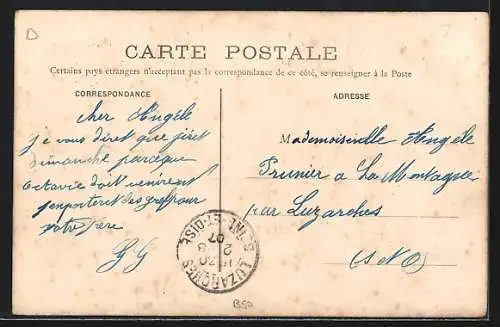 D
CARTE POSTALE
Certains pays étrangers n'acceptant pas la correspondance de ce côté, se renseigner à la Poste
CORRESPONDANCE
cher Angèle
je vous diret que jiret
dimanche parceque
octavie doit venir et
jenporteret des gref pour
votre père
G G
ADRESSE
Mademoiselle Angèle
Prunier a La Montagne
par Luzarches
(S N O)
LUZARCHES
S-INE-&-OISE
15 20
2 - 3
07
BSD